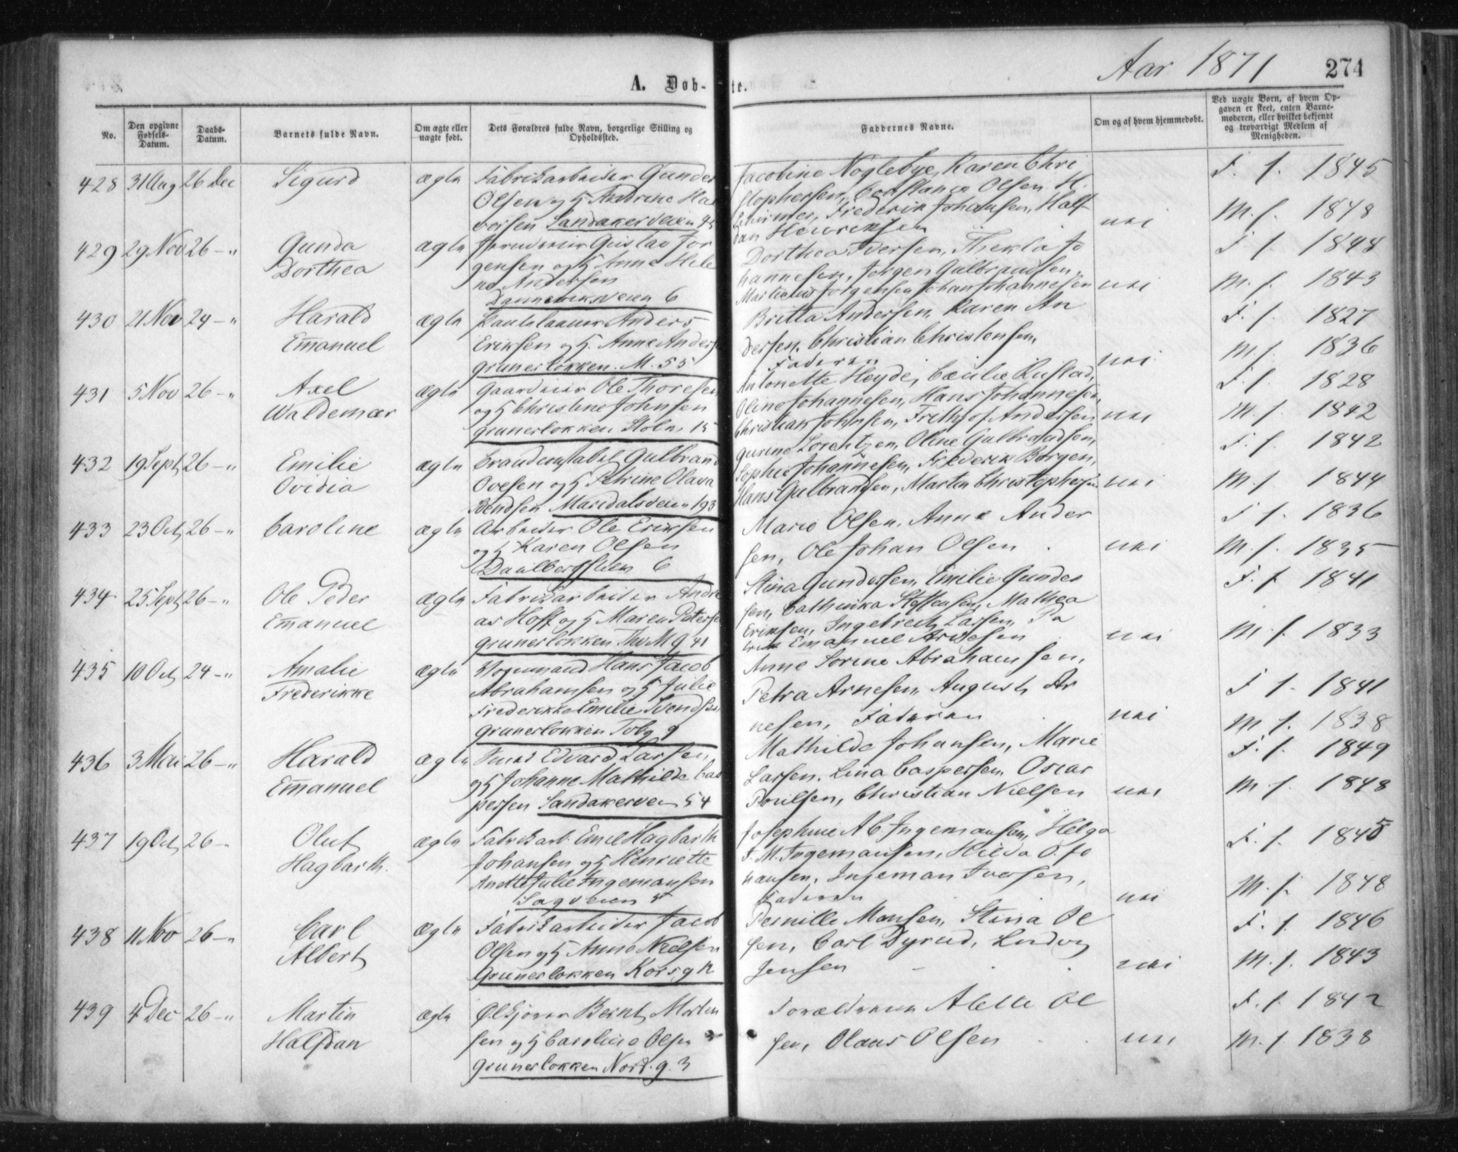 Aar 1871
274
A. Døb-te.
No.
Den opgivne Fødsels-Datum.
Daabs-Datum.
Barnets fulde Navn.
Om ægte eller uægte født.
Dets Forældres fulde Navn, borgerlige Stilling og Opholdssted.
Faddernes Navne.
Om og af hvem hjemmedøbt.
Ved uægte Børn, af hvem Opgaven er skeet, enten Barnemoderen, eller hvilket bekjendt og troværdigt Medlem af Menigheden.
428 31 Aug 26 Dec Sigurd ægte Fabrikarbeider Gunder
Olsen og H Andrine Hal
vorsen Sandakerveien 45
Jacobine Nøglebye, Karen Chri
stophersen, Constance Olsen H.
Frederik Johansen, Half
dan Henriksen nei
F. f. 1845
M. f. 1848
429 29 Nov 26 -"- Gunda
Dorthea
ægte Gustav Jør
gensen og H Anne Hele
ne Andersen
Dannevirkeveien 6
Dorthea Iversen, Thekla Jo
hannesen, Jørgen Gulbrandsen,
Martinus Jørgensen, Johan Johannesen nei
F. f. 1848
M. f. 1843
430 21 Nov 24 -"- Harald
Emanuel
ægte Anders
Eriksen og H Anne Anders
Grunerløkken M. 55
Britta Andersen, Karen An
dersen, Christian Christensen,
Faderen nei
F. f. 1827
M. f. 1836
431 5 Nov 26 -"- Axel
Waldemar
ægte Gaardeier Ole Thoresen
og H Christine Johnsen
Grunerløkken Holm 15
Antonette Heyde, Cecilie Rustad,
Oline Johannesen, Hans Johannesen,
Christian Johnsen, Frithjof Andersen nei
F. f. 1828
M. f. 1842
432 19 Sept 26 -"- Emilie
Ovidia
ægte Brandconstabel Gulbrand
Ovesen og H Petrine Olava
Bendsen Maridalsveien 193
Gurine Lorentzen, Oline Gulbrandsen,
Sophie Johannesen, Frederik Borgen,
Hans Gulbrandsen, Martin Christophersen nei
F. f. 1842
M. f. 1844
433 23 Oct 26 -"- Caroline ægte Arbeider Ole Eriksen
og H Karen Olsen
6
Marie Olsen, Anne Ander
sen, Ole Johan Olsen nei
F. f. 1836
M. f. 1835
434 25 Sept 26 -"- Ole Peder
Emanuel
ægte Fabrikarbeider Andre
as Hoff og H Maren Peters
Grunerløkken Thv M g 41
Stina Gundersen, Emilie Gunder
sen, Cathinka Steffensen, Mathea
Eriksen, Ingebreth Larsen, Pa
Emanuel nei
F. f. 1841
M. f. 1833
435 10 Oct 24 -"- Amalie
Frederikke
ægte Vognmand Hans Jacob
Abrahamsen og H Julie
Frederikke Emilie Svendsen
Grunerløkken Tobg 9
Anne Sorine Abrahamsen,
Petra Arnesen, August Ar
nesen, Faderen nei
F. f. 1841
M. f. 1838
436 3 Mai 26 -"- Harald
Emanuel
ægte Smed Edvard Larsen,
og H Johanne Mathilde Cas
persen Sandakerveien 54
Mathilde Johansen, Marie
Larsen, Lina Caspersen, Oscar
Poulsen, Christian Nielsen nei
F. f. 1849
M. f. 1848
437 19 Oct 26 - Oluf
Hagbarth.
ægte Fabrikarb. Emil Hagbarth
Johansen og H Henriette
Anette Julie Ingemansen
Sagveien 5
Josephine A C Ingemansen, Helga
J. M. Ingemansen, Hilda O. Jo
hansen, Ingeman Iversen,
Faderen nei
F. f. 1845
M. f. 1848
438 11 Nov 26 -"- Carl
Albert
ægte Fabrikarbeider Jacob
Olsen og H Anne Nielsen
Grunerløkken Korsg 12
Pernille Monsen, Stina Ol
sen, Carl Dyrud, Ludvig
Jensen nei
F. f. 1846
M. f. 1843
439 4 Dec 26 -"- Martin
Halfdan
ægte Bernt Morten
sen og H Caroline Olsen
Grunerløkken Nord. g. 3
Forældrene Alette Ol
sen, Olaus Olsen nei
F. f. 1842
M. f. 1838